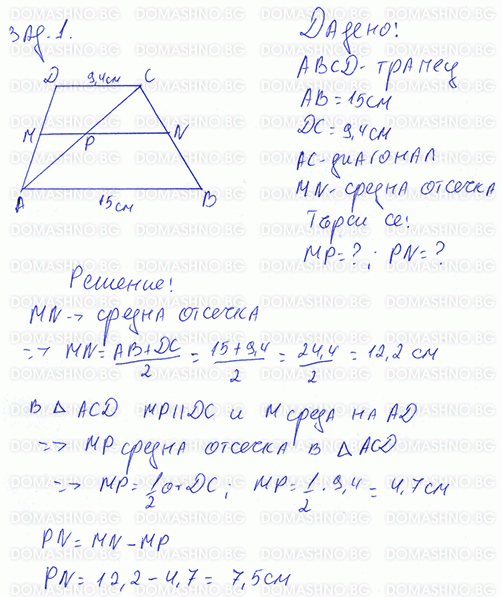 Зад. 1.
Дадено:
ABCD - трапец
AB = 15 см
DC = 9,4 см
AC - диагонал
MN - средна отсечка
Търси се:
MP = ? ; PN = ?
D 9,4 см C
M P N
A 15 см B
Решение:
MN → средна отсечка
=> MN = AB+DC/2 = 15+9,4/2 = 24,4/2 = 12,2 см
В Δ ACD MP || DC и M среда на AD
=> MP средна отсечка в Δ ACD
=> MP = 1/2 от DC ; MP = 1/2 . 9,4 = 4,7 см
PN = MN - MP
PN = 12,2 - 4,7 = 7,5 см
DOMASHNO.BG